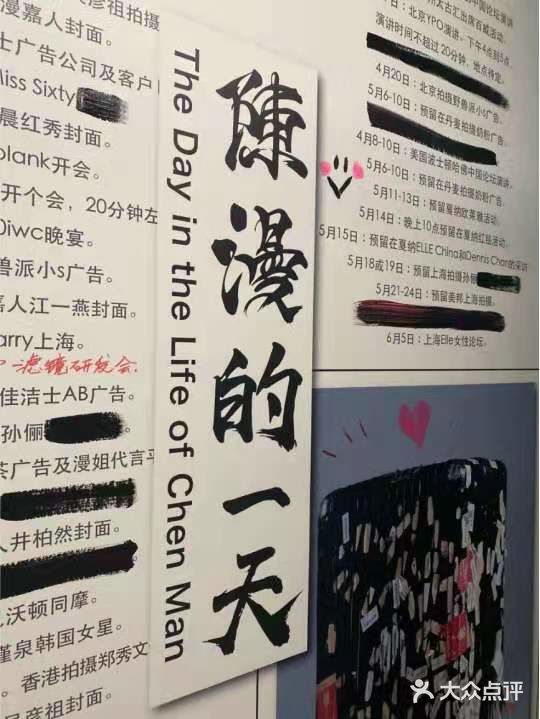 彦祖拍摄
漫嘉人封面。
士广告公司及客户
iss Sixty
晨红秀封面。
plank开会。
开个会，20分钟左
iwc晚宴。
兽派小s广告。
嘉人江一燕封面。
arry上海。
滤镜研发会.
佳洁士AB广告。
孙俪
广告及漫姐代言平
人井柏然封面。
沃顿同摩。
泉韩国女星。
香港拍摄郑秀文
彦祖封面。
陳漫的一天
The Day in the Life of Chen Man
中国论坛演讲
太古汇出席百威活动。
日：北京YPO演讲。下午4点到5点
演讲时间不超过20分钟，地点待定。
4月20日：北京拍摄野兽派小s广告。
5月6-10日：预留在丹麦拍摄奶粉广告。
4月8-10日：美国波士顿哈佛中国论坛演讲。
5月6-10日：预留在丹麦拍摄奶粉广告。
5月11-13日：预留戛纳欧莱雅活动。
5月14日：晚上10点预留在戛纳红毯活动。
5月15日：预留在戛纳ELLE China和Dennis Chan的采访
5月18或19日：预留上海拍摄孙俪
5月21-24日：预留美邦上海拍摄。
6月5日：上海Elle女性论坛。
大众点评